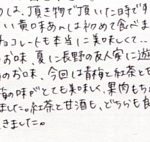 は、頂き物で頂いた日時です
い黄味あんは初めて食べま
ョコレートも本当に美味しくて..
お味、夏に長野の友人家に遊
のお味、今回は青梅と紅茶を
毎の味がとても美味しく果肉もち
ました。紅茶と甘酒も、どちらも食
きました。